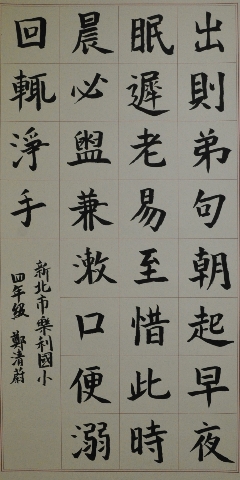 出則弟句朝起早夜
眠遲老易至惜此時
晨必盥兼漱口便溺
回輒淨手
新北市樂利國小
四年級 鄭清蔚